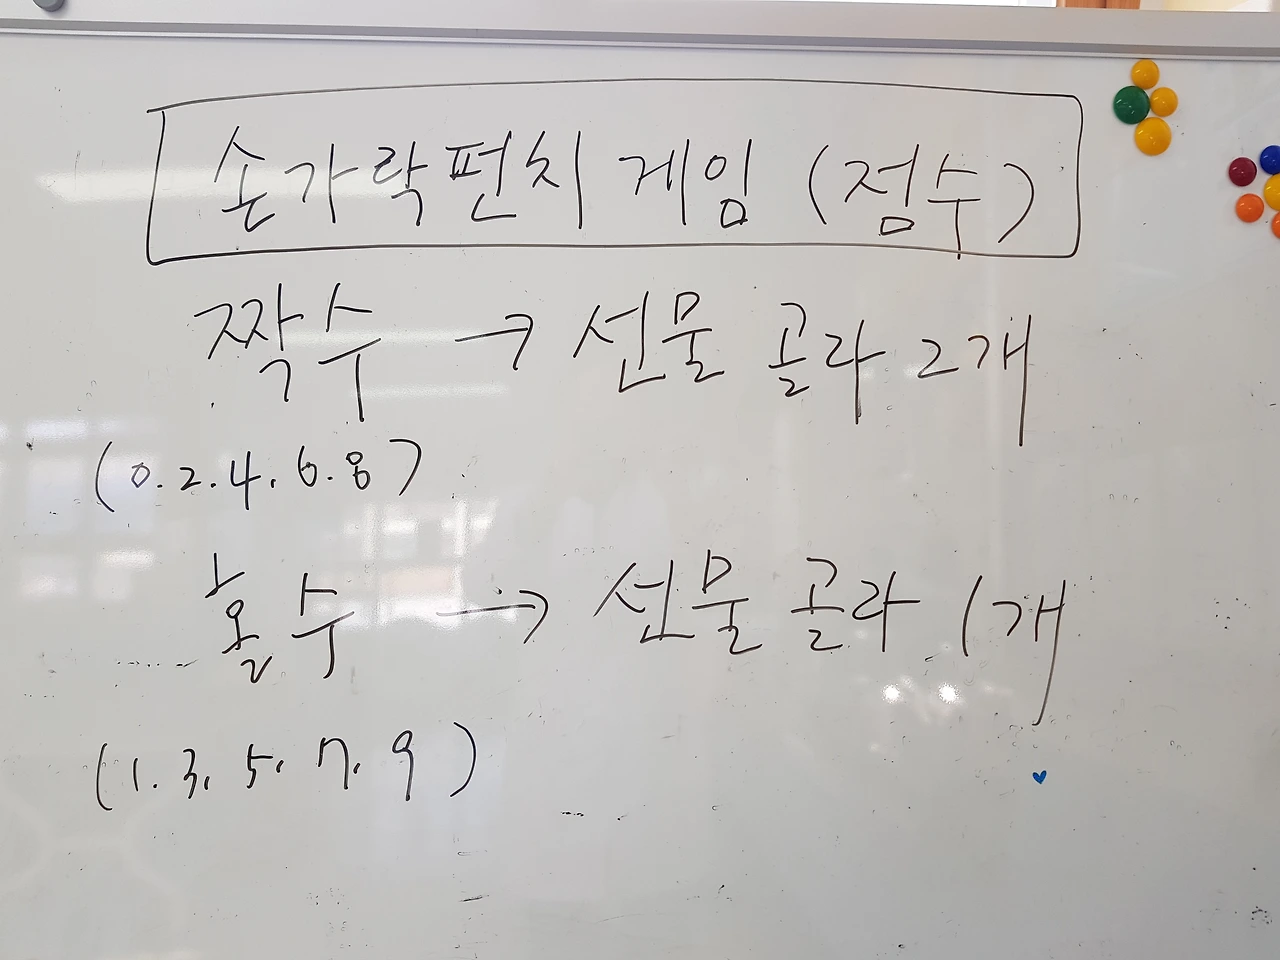 손가락펀치 게임 (점수)
짝수 → 선물 골라 2개
(0.2.4.6.8)
홀수 → 선물 골라 1개
(1.3. 5. 7. 9)